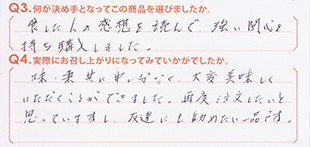 Q3.何が決め手となってこの商品を選びましたか。
食した人の感想を読んで、強い関心を
持ち購入しました。
Q4.実際にお召し上がりになってみていかがでしたか。
味、量共に申し分なく、大変美味しく
いただくことができました。再度注文したいと
思っていますし、友達にも勧めたい一品です。